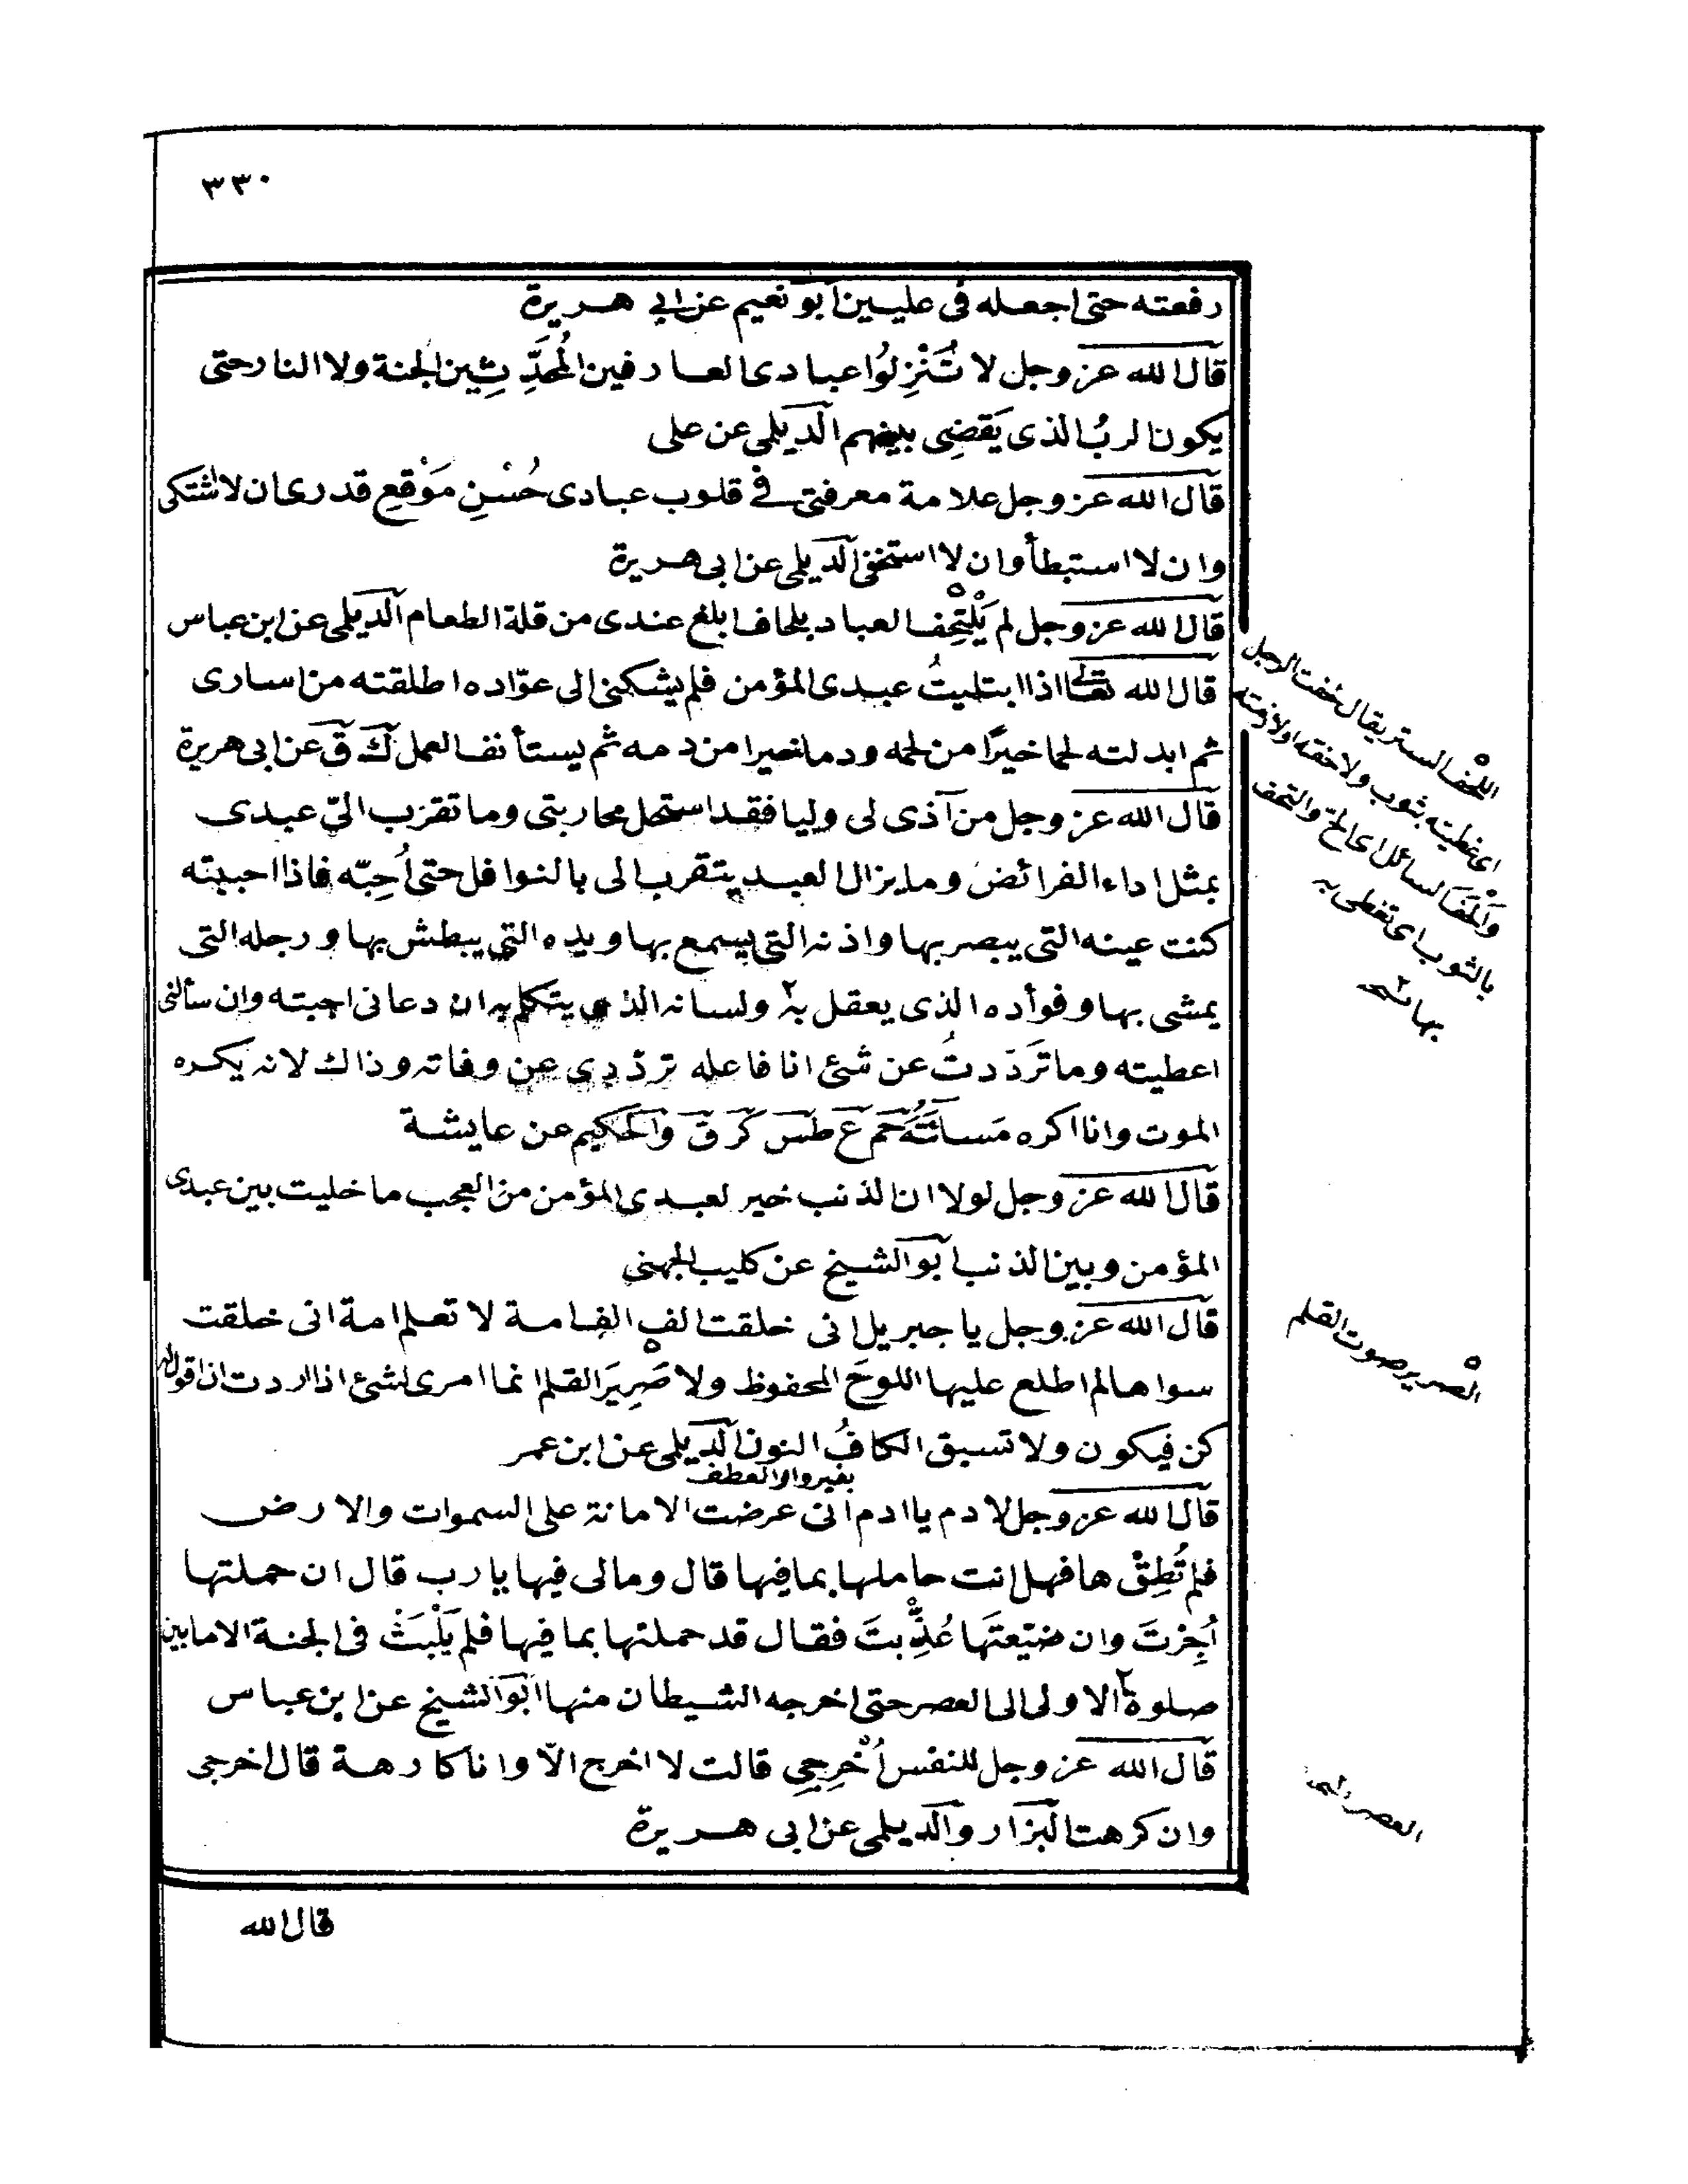 ٣٣٠
رفعته حتى اجعله فى عليين ابو نعيم عن ابى هريرة
قال الله عز وجل لا تُنَزِلُوا عبادى العارفين المُحَدِّثِين الجنة ولا النار حتى
يكون الربُ الذى يَقضِى بينهم الديلمى عن على
قال الله عز وجل علامة معرفتى فى قلوب عبادى حُسْنِ مَوْقِعِ قدرى ان لا اشتكى
وان لا استبطأ وان لا استخفى الديلمى عن ابى هريرة
قال الله عز وجل لم يَلْتَحِف العباد بلحاف ابلغ عندى من قلة الطعام الديلمى عن ابن عباس
قال الله تعالى اذا ابتليتُ عبدى المؤمن فلم يشكنى الى عوّاده اطلقته من اسارى
ثم ابدلته لحما خيرًا من لحمه ودما خيرا من دمه ثم يستأنف العمل ك ق عن ابى هريرة
قال الله عز وجل من آذى لى وليا فقد استحل محاربتى وما تقرب الىّ عبدى
بمثل اداء الفرائض وما يزال العبد يتقرب الى بالنوافل حتى اُحِبّه فاذا احببته
كنت عينه التى يبصر بها واذنه التى يسمع بها ويده التى يبطش بها ورجله التى
يمشى بها وفوأده الذى يعقل به ولسانه الذى يتكلم به ان دعانى اجبته وان سألنى
اعطيته وما تَردّدتُ عن شئ انا فاعله تردّدى عن وفاته وذاك لانه يكره
الموت وانا اكره مَسائَتَهُ حم ع طس كر ق والحكيم عن عايشة
قال الله عز وجل لولا ان الذنب خير لعبدى المؤمن من العجب ما خليت بين عبدى
المؤمن وبين الذنب ابو الشيخ عن كليب الجهنى
قال الله عز وجل يا جبريل انى خلقت الف الف امة لا تعلم امة انى خلقت
سواها لم اطلع عليها اللوحَ المحفوظ ولا صَرِيرَ القلم انما امرى لشئ اذا اردت ان اقول له
كن فيكون ولا تسبق الكافُ النون الديلمى عن ابن عمر
بغير واو العطف
قال الله عز وجل لادم يا ادم انى عرضت الامانة على السموات والارض
فلم تُطِقْها فهل انت حاملها بما فيها قال ومالى فيها يا رب قال ان حملتها
اُجِرْتَ وان ضيّعتَها عُذِّبتَ فقال قد حملتها بما فيها فلم يَلْبَثْ فى الجنة الا ما بين
صلوة الاولى الى العصر حتى اخرجه الشيطان منها ابو الشيخ عن ابن عباس
قال الله عز وجل للنفس اُخْرِجِى قالت لا اخرج الاّ وانا كارهة قال اخرجى
وان كرهت البزار والديلمى عن ابى هريرة
قال الله
اللحف الستر يقال لحفت الرجل
اى غطيته بثوب ولاحفه اولازمته
والحف السائل اى الح والتحف
بالثوب اى تغطى به
الصرير صوت القلم
العصر